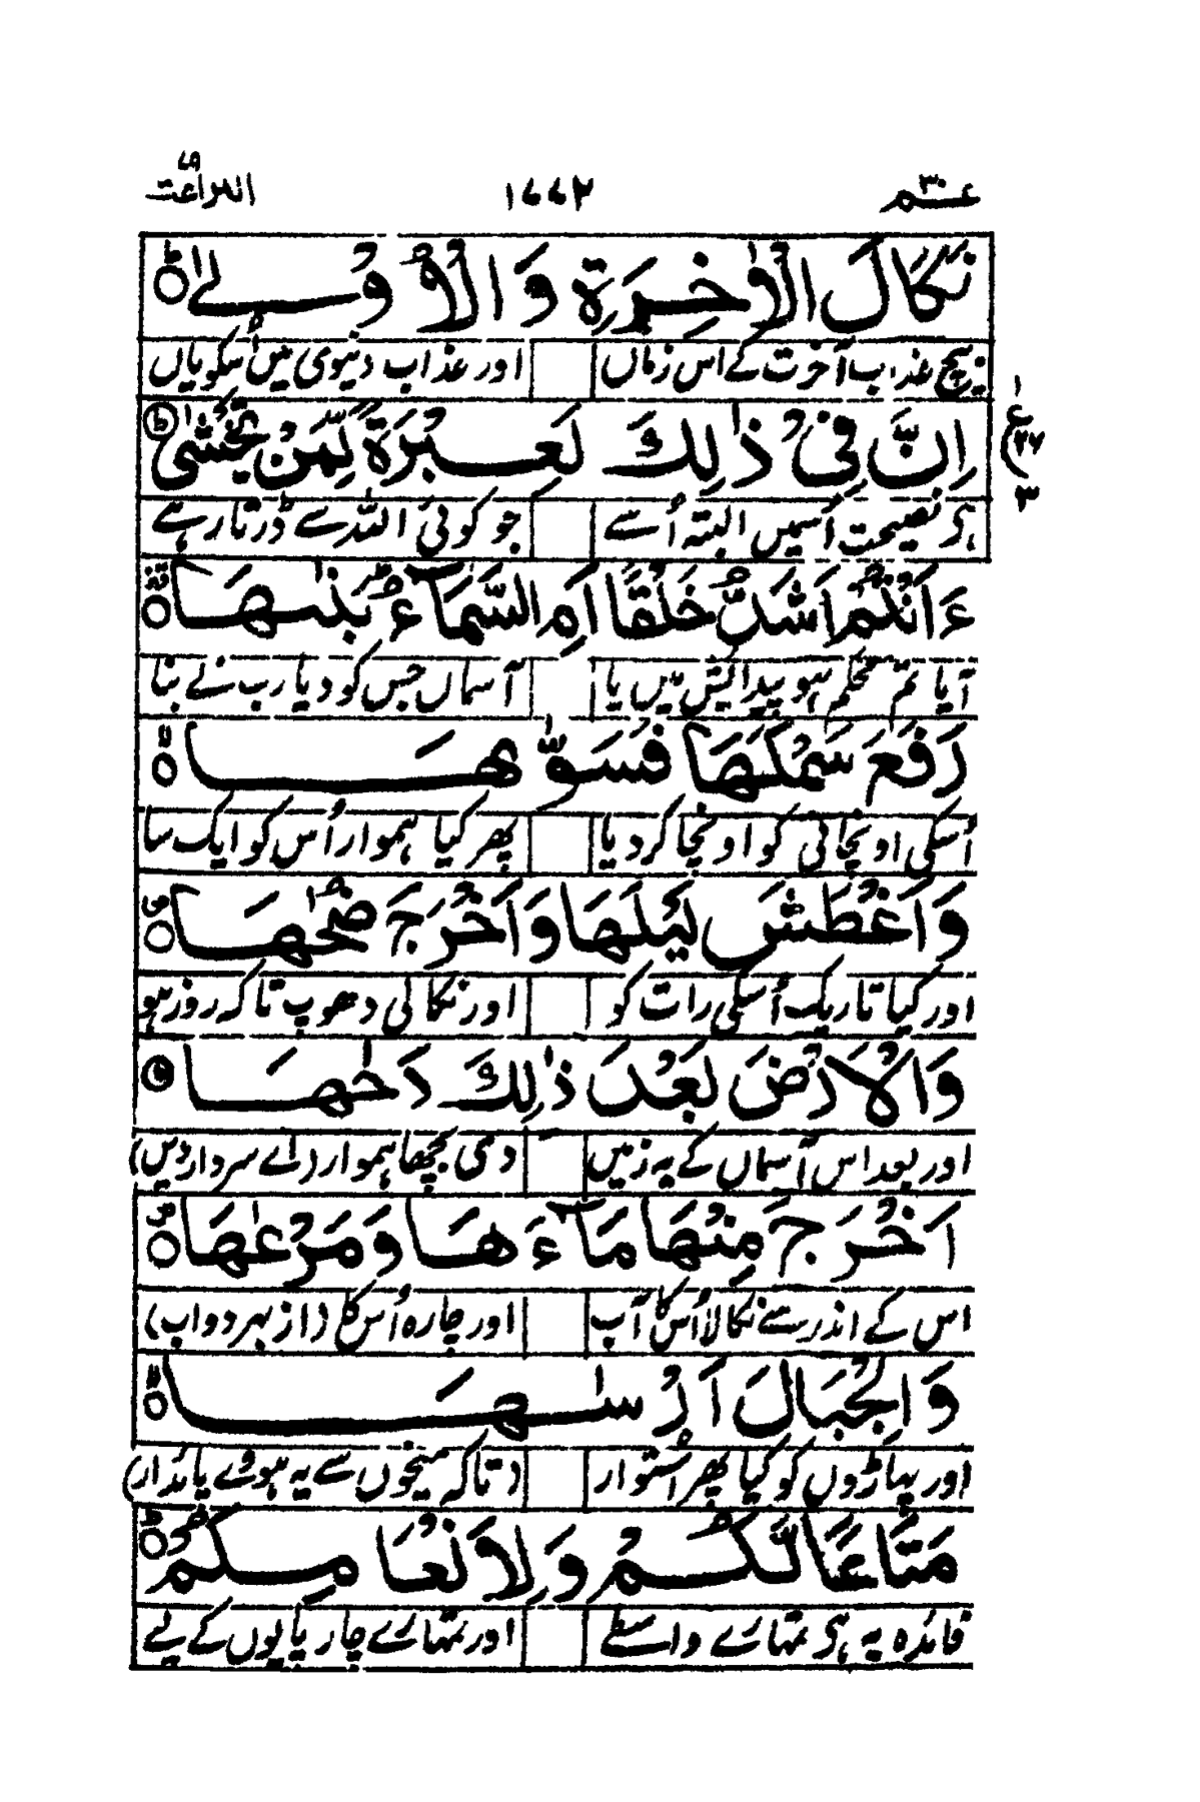 عـم ٣٠ ١٧٧٢ النّٰزعٰت ٧٩
نَكَالَ الْاٰخِرَةِ وَالْاُوْلٰى ۝ؕ
بیچ عذاب آخرت کے اس زماں اور عذاب دنیوی میں
اِنَّ فِيْ ذٰلِكَ لَعِبْرَةً لِّمَنْ يَّخْشٰى ۝ؕ
ع
٢٦
٣
ہی نصیحت اسمیں البتہ اُسے جو کوئی اللہ سے ڈرتا رہے
ءَاَنْتُمْ اَشَدُّ خَلْقًا اَمِ السَّمَآءُ ؕ بَنٰىهَا ۝
آیا تم محکم ہو پیدائش میں یا آسماں جس کو دیا رب نے بنا
رَفَعَ سَمْكَهَا فَسَوّٰىهَا ۝ۙ
اُسکی اونچائی کو اونچا کر دیا پھر کیا ہموار اُس کو ایک سا
وَاَغْطَشَ لَيْلَهَا وَاَخْرَجَ ضُحٰىهَا ۝
اور کیا تاریک اُسکی رات کو اور نکالی دھوپ تاکہ روز ہو
وَالْاَرْضَ بَعْدَ ذٰلِكَ دَحٰىهَا ۝ؕ
اور بعد اس آسماں کے یہ زمیں دی بچھا ہموار (اے سردار دیں)
اَخْرَجَ مِنْهَا مَآءَهَا وَمَرْعٰىهَا ۝
اس کے اندر سے نکالا اُس کا آپ اور چارہ اُس کا (از بہر دواب)
وَالْجِبَالَ اَرْسٰىهَا ۝ۙ
اور پہاڑوں کو کیا پھر اُستوار (تاکہ میخوں سے یہ ہوئے پائدار)
مَتَاعًا لَّكُمْ وَلِاَنْعَامِكُمْ ۝ؕ
فائدہ یہ ہی تمہارے واسطے اور تمہارے چار پایوں کے لیے